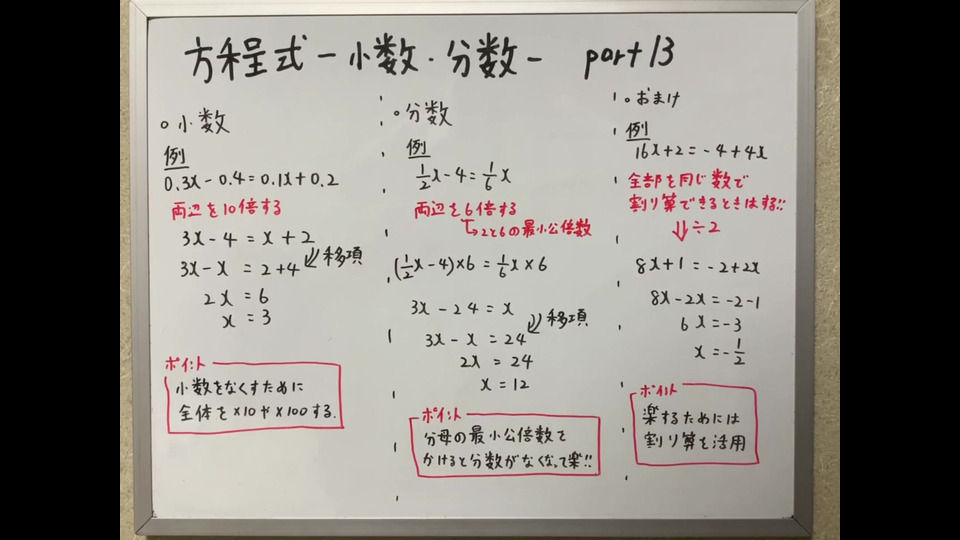 方程式-小数・分数- part 13
○小数
例
0.3x-0.4=0.1x+0.2
両辺を10倍する
3x-4=x+2
3x-x=2+4 移項
2x=6
x=3
ポイント
小数をなくすために
全体を×10や×100する.
○分数
例
1/2x-4=1/6x
両辺を6倍する
→2と6の最小公倍数
(1/2x-4)×6=1/6x×6
3x-24=x
3x-x=24 移項
2x=24
x=12
ポイント
分母の最小公倍数を
かけると分数がなくなって楽!!
○おまけ
例
16x+2=-4+4x
全部を同じ数で
割り算できるときはする!!
⇓÷2
8x+1=-2+2x
8x-2x=-2-1
6x=-3
x=-1/2
ポイント
楽するためには
割り算を活用